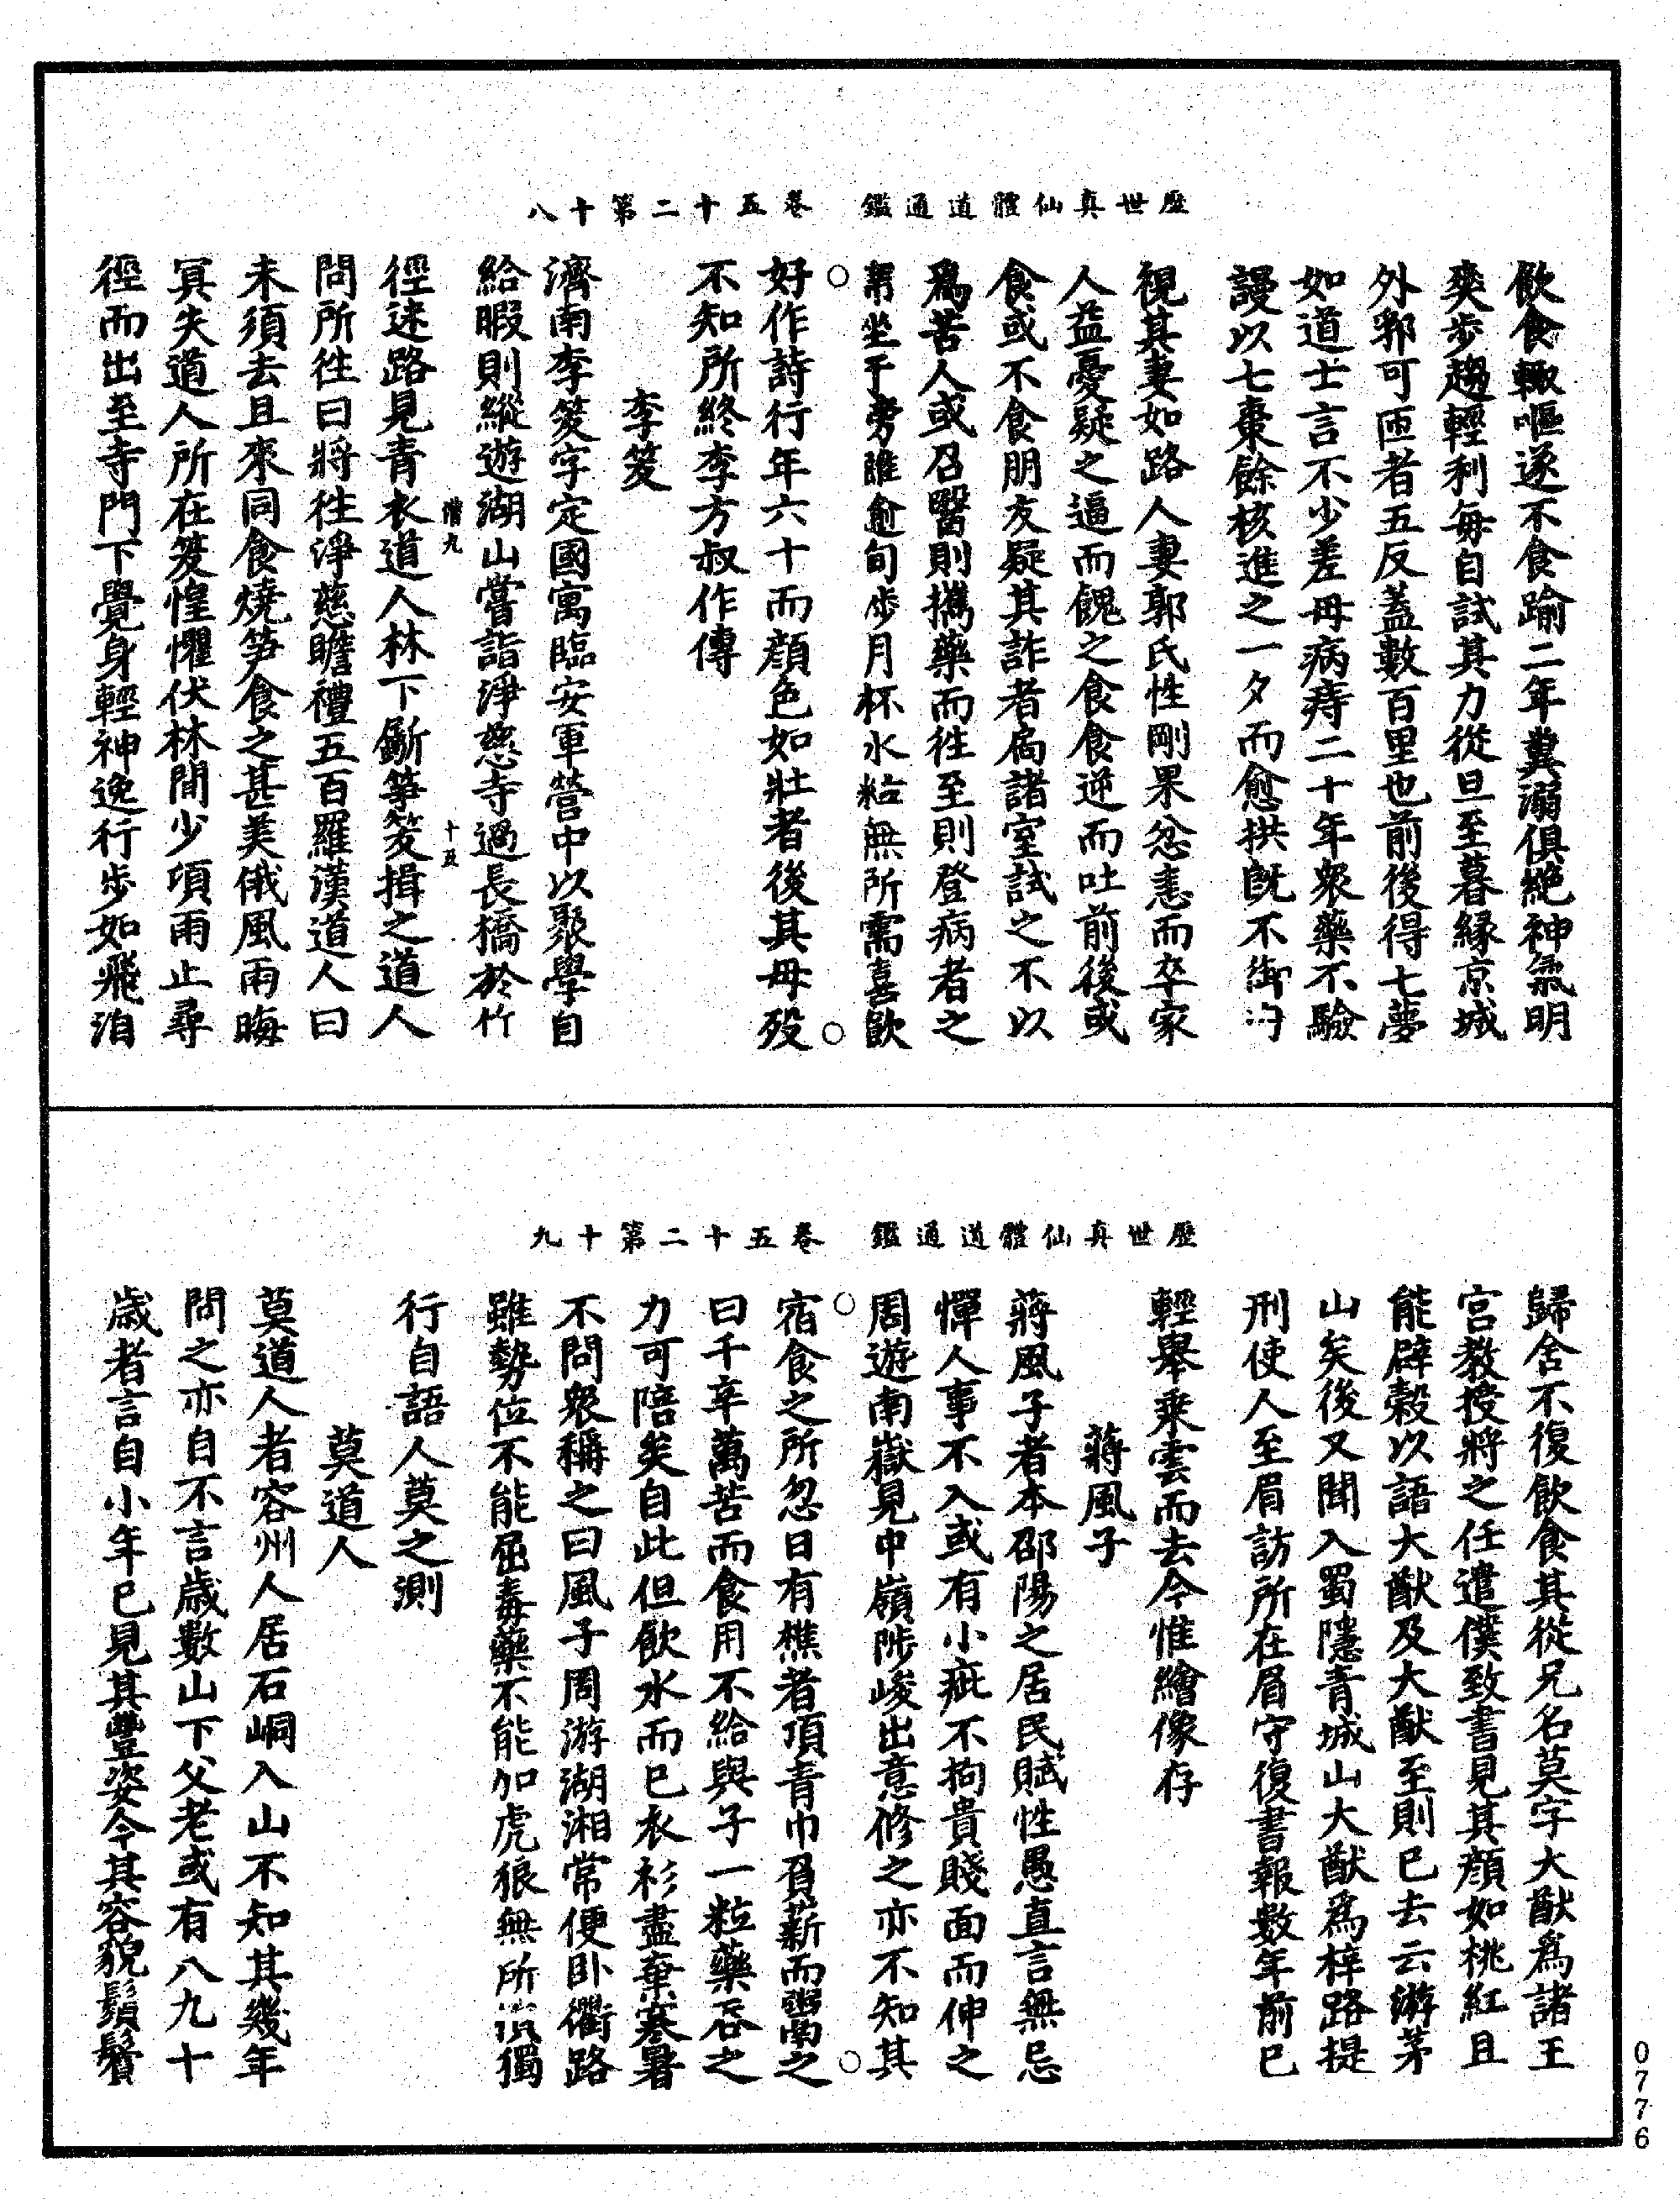 歷世真仙體道通鑑 卷五十二第十八
飲食輙嘔遂不食踰二年糞溺俱絕神氣明
爽步趨輕利每自試其力從旦至暮緣京城
外郛可匝者五反蓋數百里也前後得七夢
如道士言不少差母病痔二十年衆藥不驗
謾以七棗餘核進之一夕而愈拱旣不御
視其妻如路人妻郭氏性剛果忿恚而卒家
人益憂疑之逼而餽之食食逆而吐前後或
食或不食朋友疑其詐者扃諸室試之不以
爲苦人或召醫則攜藥而徃至則登病者之
席坐于旁誰愈旬步月杯水粒無所需喜飲
好作詩行年六十而顏色如壯者後其母殁
不知所終李方叔作傳
李笈
濟南李笈字定國寓臨安軍營中以聚學自
給暇則縱遊湖山嘗詣淨慈寺過長橋於竹
徑迷路見青衣道人林下斸笋笈揖之道人
問所徃曰將徃淨慈瞻禮五百羅漢道人曰
未須去且來同食燒笋食之甚美俄風雨晦
冥失道人所在笈惶懼伏林間少頃雨止尋
徑而出至寺門下覺身輕神逸行步如飛洎
九
十五
歷世真仙體道通鑑 卷五十二第十九
歸舍不復飲食其從兄名莫字大猷爲諸王
宮教授將之任遣僕致書見其顏如桃紅且
能辟穀以語大猷及大猷至則已去云游茅
山矣後又聞入蜀隱青城山大猷爲梓路提
刑使人至眉訪所在眉守復書報數年前已
輕舉乘雲而去今惟繪像存
蔣風子
蔣風子者本邵陽之居民賦性愚直言無忌
憚人事不入或有小疵不拘貴賤面而伸之
周遊南嶽見中嶺陟峻出意修之亦不知其
宿食之所忽日有樵者頂青巾負薪而鬻之
曰千辛萬苦而食用不給與子一粒藥吞之
力可陪矣自此但飲水而已衣衫盡棄寒暑
不問衆稱之曰風子周游湖湘常便卧衢路
雖勢位不能屈毒藥不能加虎狼無所獨
行自語人莫之測
莫道人
莫道人者容州人居石峒入山不知其幾年
問之亦自不言歲數山下父老或有八九十
歲者言自小年已見其豐姿今其容貌鬚鬢
0776